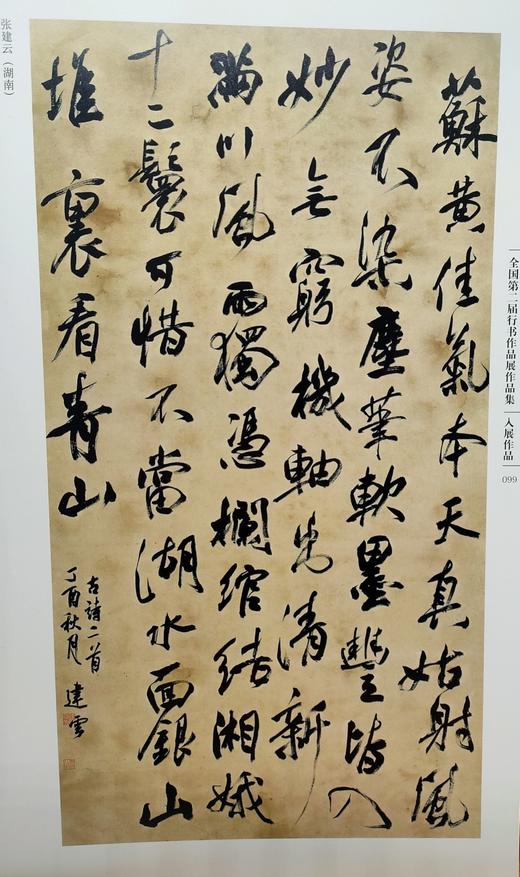 全国第二届行书作品展作品集 入展作品
099
蘇黄佳氣本天真姑射風
姿不染塵筆軟墨豐皆入
妙無窮機軸出清新
滿川風雨獨憑欄綰結湘娥
十二鬟可惜不當湖水面銀山
堆裏看青山
古詩二首
丁酉秋月 建雲
张建云（湖南）